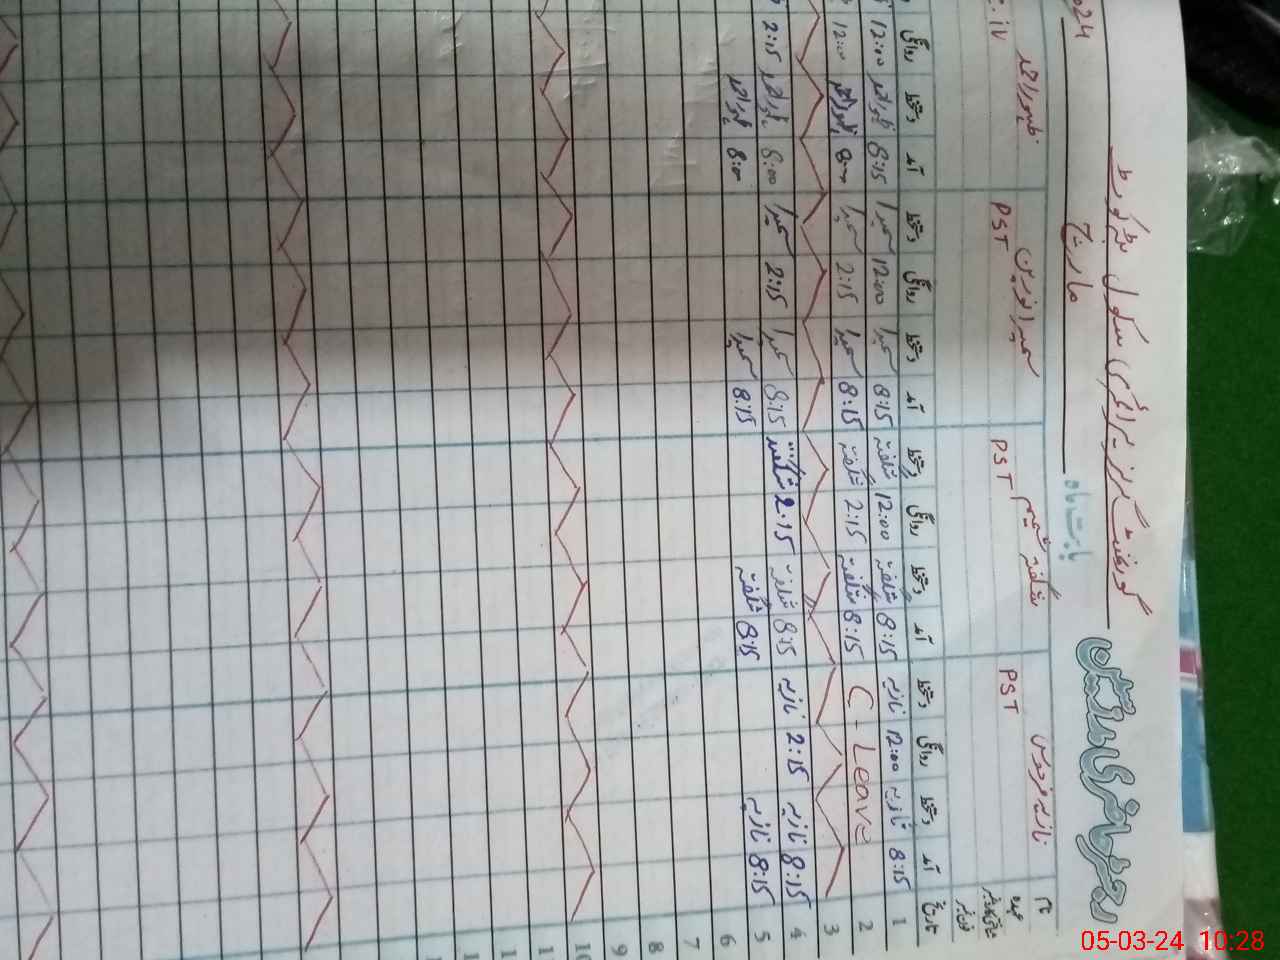 رجسٹر حاضری مدرسین
گورنمنٹ گرلز پرائمری سکول
بابت ماہ مارچ 2024
نام نازیہ فردوس شگفتہ شمیم سمیرا نورین ظہور احمد
عہدہ PST PST PST C.iv
تاریخ آمد دستخط روانگی دستخط آمد دستخط روانگی دستخط آمد دستخط روانگی دستخط آمد دستخط روانگی
1 8:15 نازیہ 12:00 نازیہ 8:15 شگفتہ 12:00 شگفتہ 8:15 سمیرا 12:00 سمیرا 8:15 ظہور احمد 12:00
2 C - Leave 8:15 شگفتہ 2:15 شگفتہ 8:15 سمیرا 2:15 سمیرا 8:00 ظہور احمد 12:00
3
4 8:15 نازیہ 2:15 نازیہ 8:15 شگفتہ 2:15 شگفتہ 8:15 سمیرا 2:15 سمیرا 8:00 ظہور احمد 2:15
5 8:15 نازیہ 8:15 شگفتہ 8:15 سمیرا 8:00 ظہور احمد
6
7
8
9
10
05-03-24 10:28